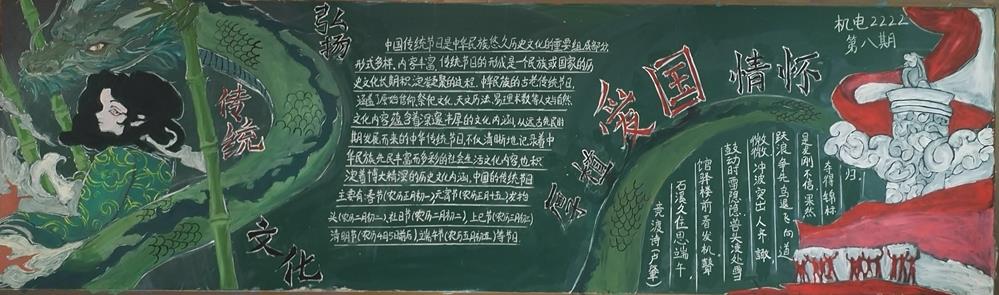 机电2222
第八期
弘扬
传统
文化
爱国
情怀
中国传统节日是中华民族悠久历史文化的重要组成部分,
形式多样、内容丰富.传统节日的形成是一个民族或国家的历
史文化长期积淀凝聚的过程.中华民族的古老传统节日,
涵盖了原始信仰、祭祀文化、天文历法、易理术数等人文与自然
文化内容,蕴含着深邃丰厚的文化内涵.从远古先民时
期发展而来的中华传统节日,不仅清晰地记录着中
华民族先民丰富而多彩的社会生活文化内容,也积
淀着博大精深的历史文化内涵.中国的传统节日
主要有:春节(农历正月初一)、元宵节(农历正月十五)、龙抬
头(农历二月初二)、社日节(农历二月初二)、上巳节(农历三月初三)
清明节(农历4月5日前后)、端午节(农历五月初五)等节日.
竞渡诗(卢肇)
石溪久住思端午
馆驿楼前看发机鼙
鼓动时雷隐隐兽头凌处雪
微微冲波突出人齐譀
跃浪争先鸟退飞向道
是龙刚不信果然
夺得锦标
归.